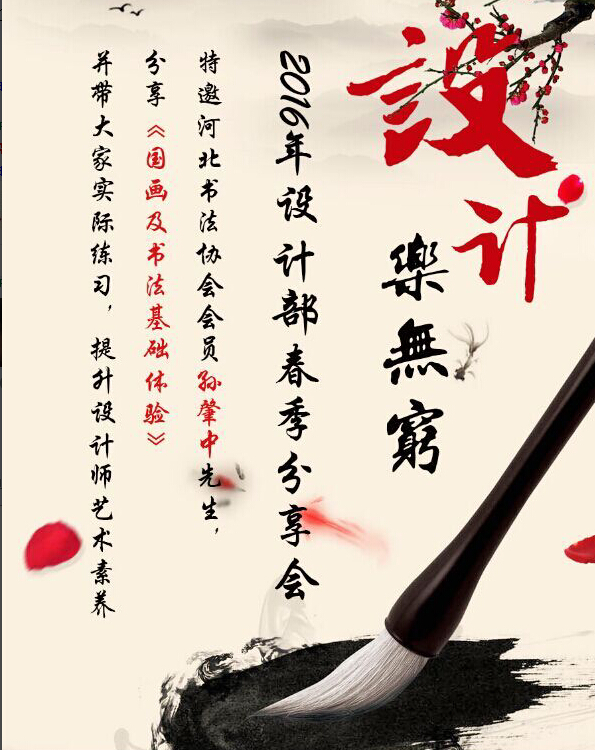 設计
樂無窮
2016年设计部春季分享会
特邀河北书法协会会员孙肇中先生，
分享《国画及书法基础体验》
并带大家实际练习，提升设计师艺术素养